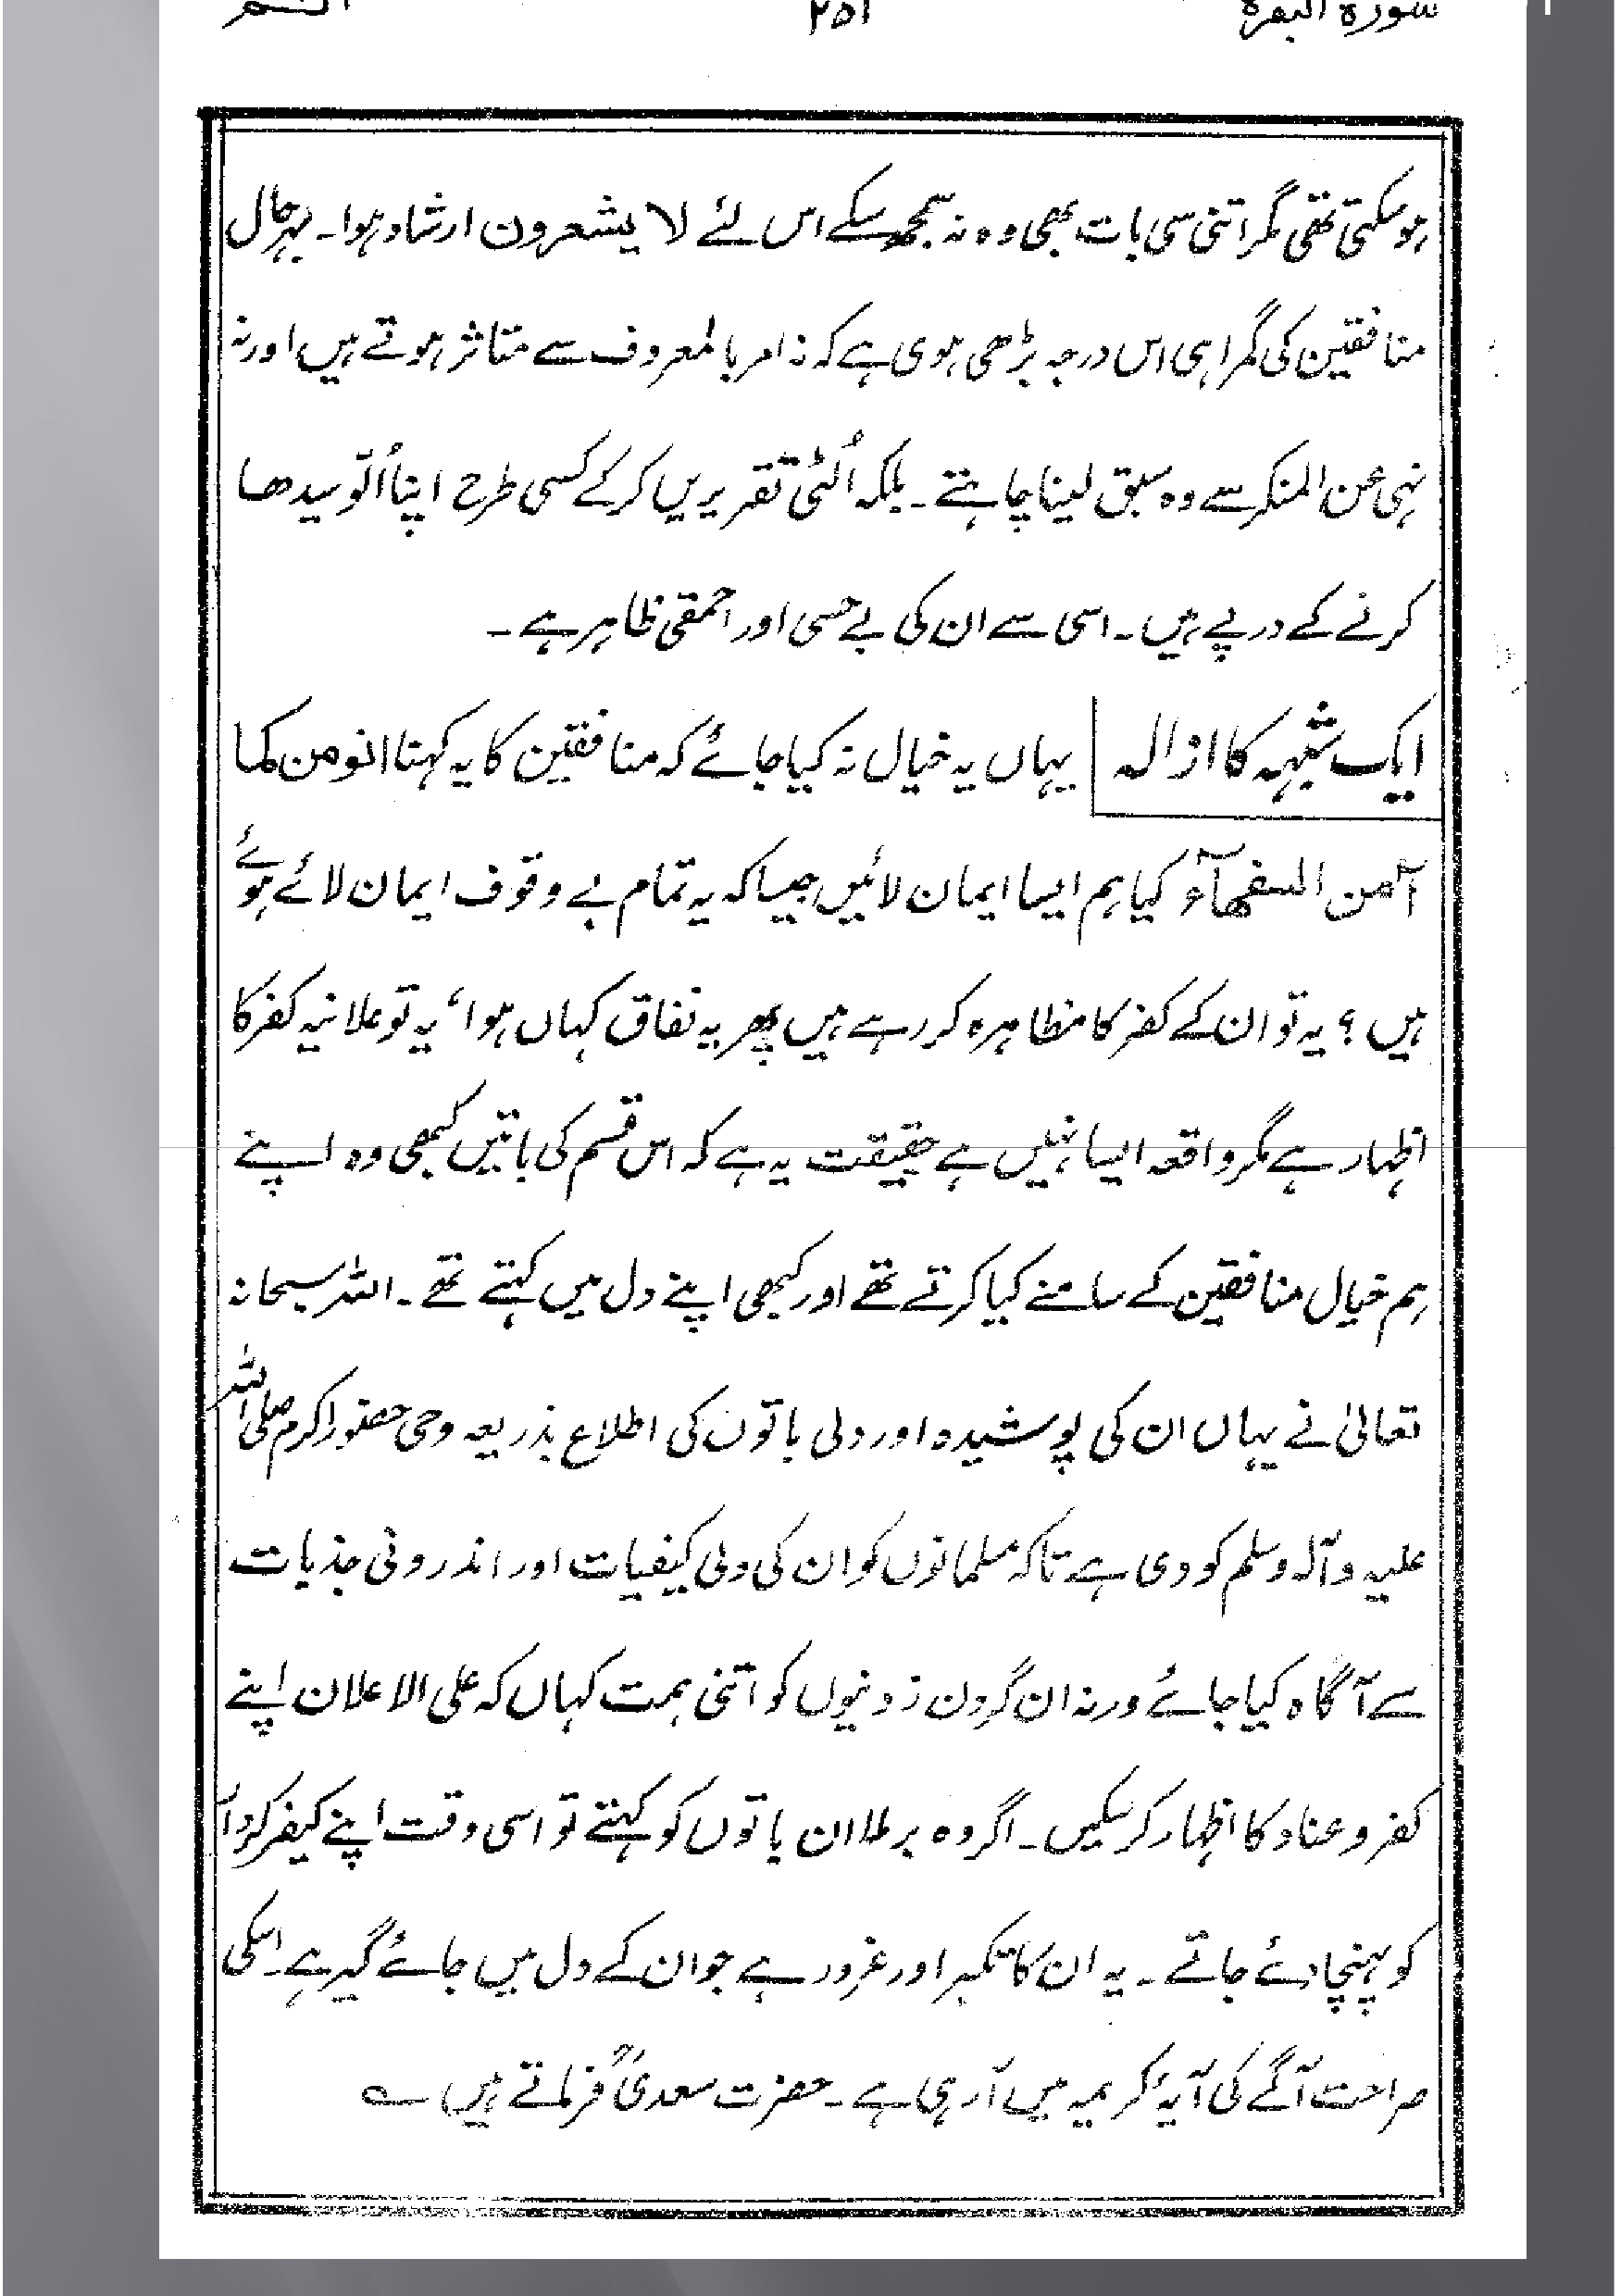 سورة البقرة ۲۵۱ الٓـمّٓ
ہوسکتی تھی مگر اتنی سی بات بھی وہ نہ سمجھ سکے اس لئے لا یشعرون ارشاد ہوا۔ بہرحال
منافقین کی گمراہی اس درجہ بڑھی ہوی ہے کہ نہ امر بالمعروف سے متاثر ہوتے ہیں اور نہ
نہی عن المنکر سے وہ سبق لینا چاہتے۔ بلکہ اُلٹی تقریریں کر کے کسی طرح اپنا اُلّو سیدھا
کرنے کے درپے ہیں۔ اسی سے ان کی بے حسی اور احمقی ظاہر ہے۔
ایک شبہہ کا ازالہ یہاں یہ خیال نہ کیا جائے کہ منافقین کا یہ کہنا انومن کما
آمن السفهآء کیا ہم ایسا ایمان لائیں جیسا کہ یہ تمام بے وقوف ایمان لائے ہوئے
ہیں ؟ یہ تو ان کے کفر کا مظاہرہ کر رہے ہیں پھر یہ نفاق کہاں ہوا، یہ تو علانیہ کفر کا
اظہار ہے مگر واقعہ ایسا نہیں ہے حقیقت یہ ہے کہ اس قسم کی باتیں کبھی وہ اپنے
ہم خیال منافقین کے سامنے کیا کرتے تھے اور کبھی اپنے دل میں کہتے تھے۔ اللہ سبحانہ
تعالیٰ نے یہاں ان کی پوشیدہ اور دلی باتوں کی اطلاع بذریعہ وحی حضور اکرم صلی اللہ
علیہ وآلہ وسلم کو دی ہے تاکہ مسلمانوں کو ان کی دلی کیفیات اور اندرونی جذبات
سے آگاہ کیا جائے ورنہ ان گردن زدنیوں کو اتنی ہمت کہاں کہ علی الاعلان اپنے
کفر و عناد کا اظہار کر سکیں۔ اگر وہ برملا ان باتوں کو کہتے تو اسی وقت اپنے کیفر کردار
کو پہنچا دئے جاتے۔ یہ ان کا تکبر اور غرور ہے جو ان کے دل میں جائے گیر ہے۔ اسکی
صراحت آگے کی آیۂ کریمہ میں آرہی ہے۔ حضرت سعدیؒ فرماتے ہیں ؎